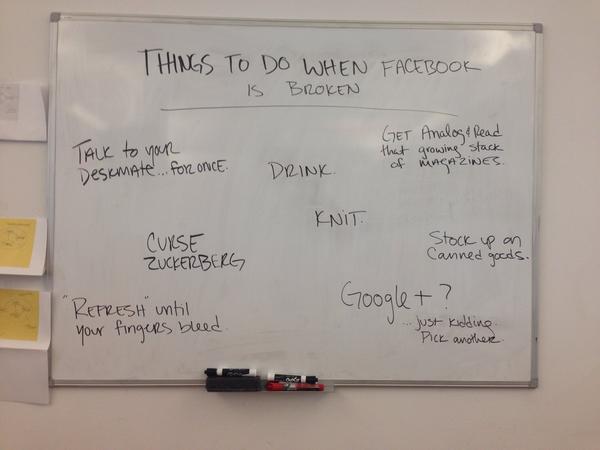 THINGS TO DO WHEN FACEBOOK
IS BROKEN
TALK to your
DESKMATE...FOR ONCE.
DRINK.
GET Analog & Read
that growing stack
of MAGAZINES.
KNIT.
CURSE
ZUCKERBERG
Stock up on
Canned goods.
"REFRESH" until
your fingers bleed.
Google+?
...just kidding.
Pick another.